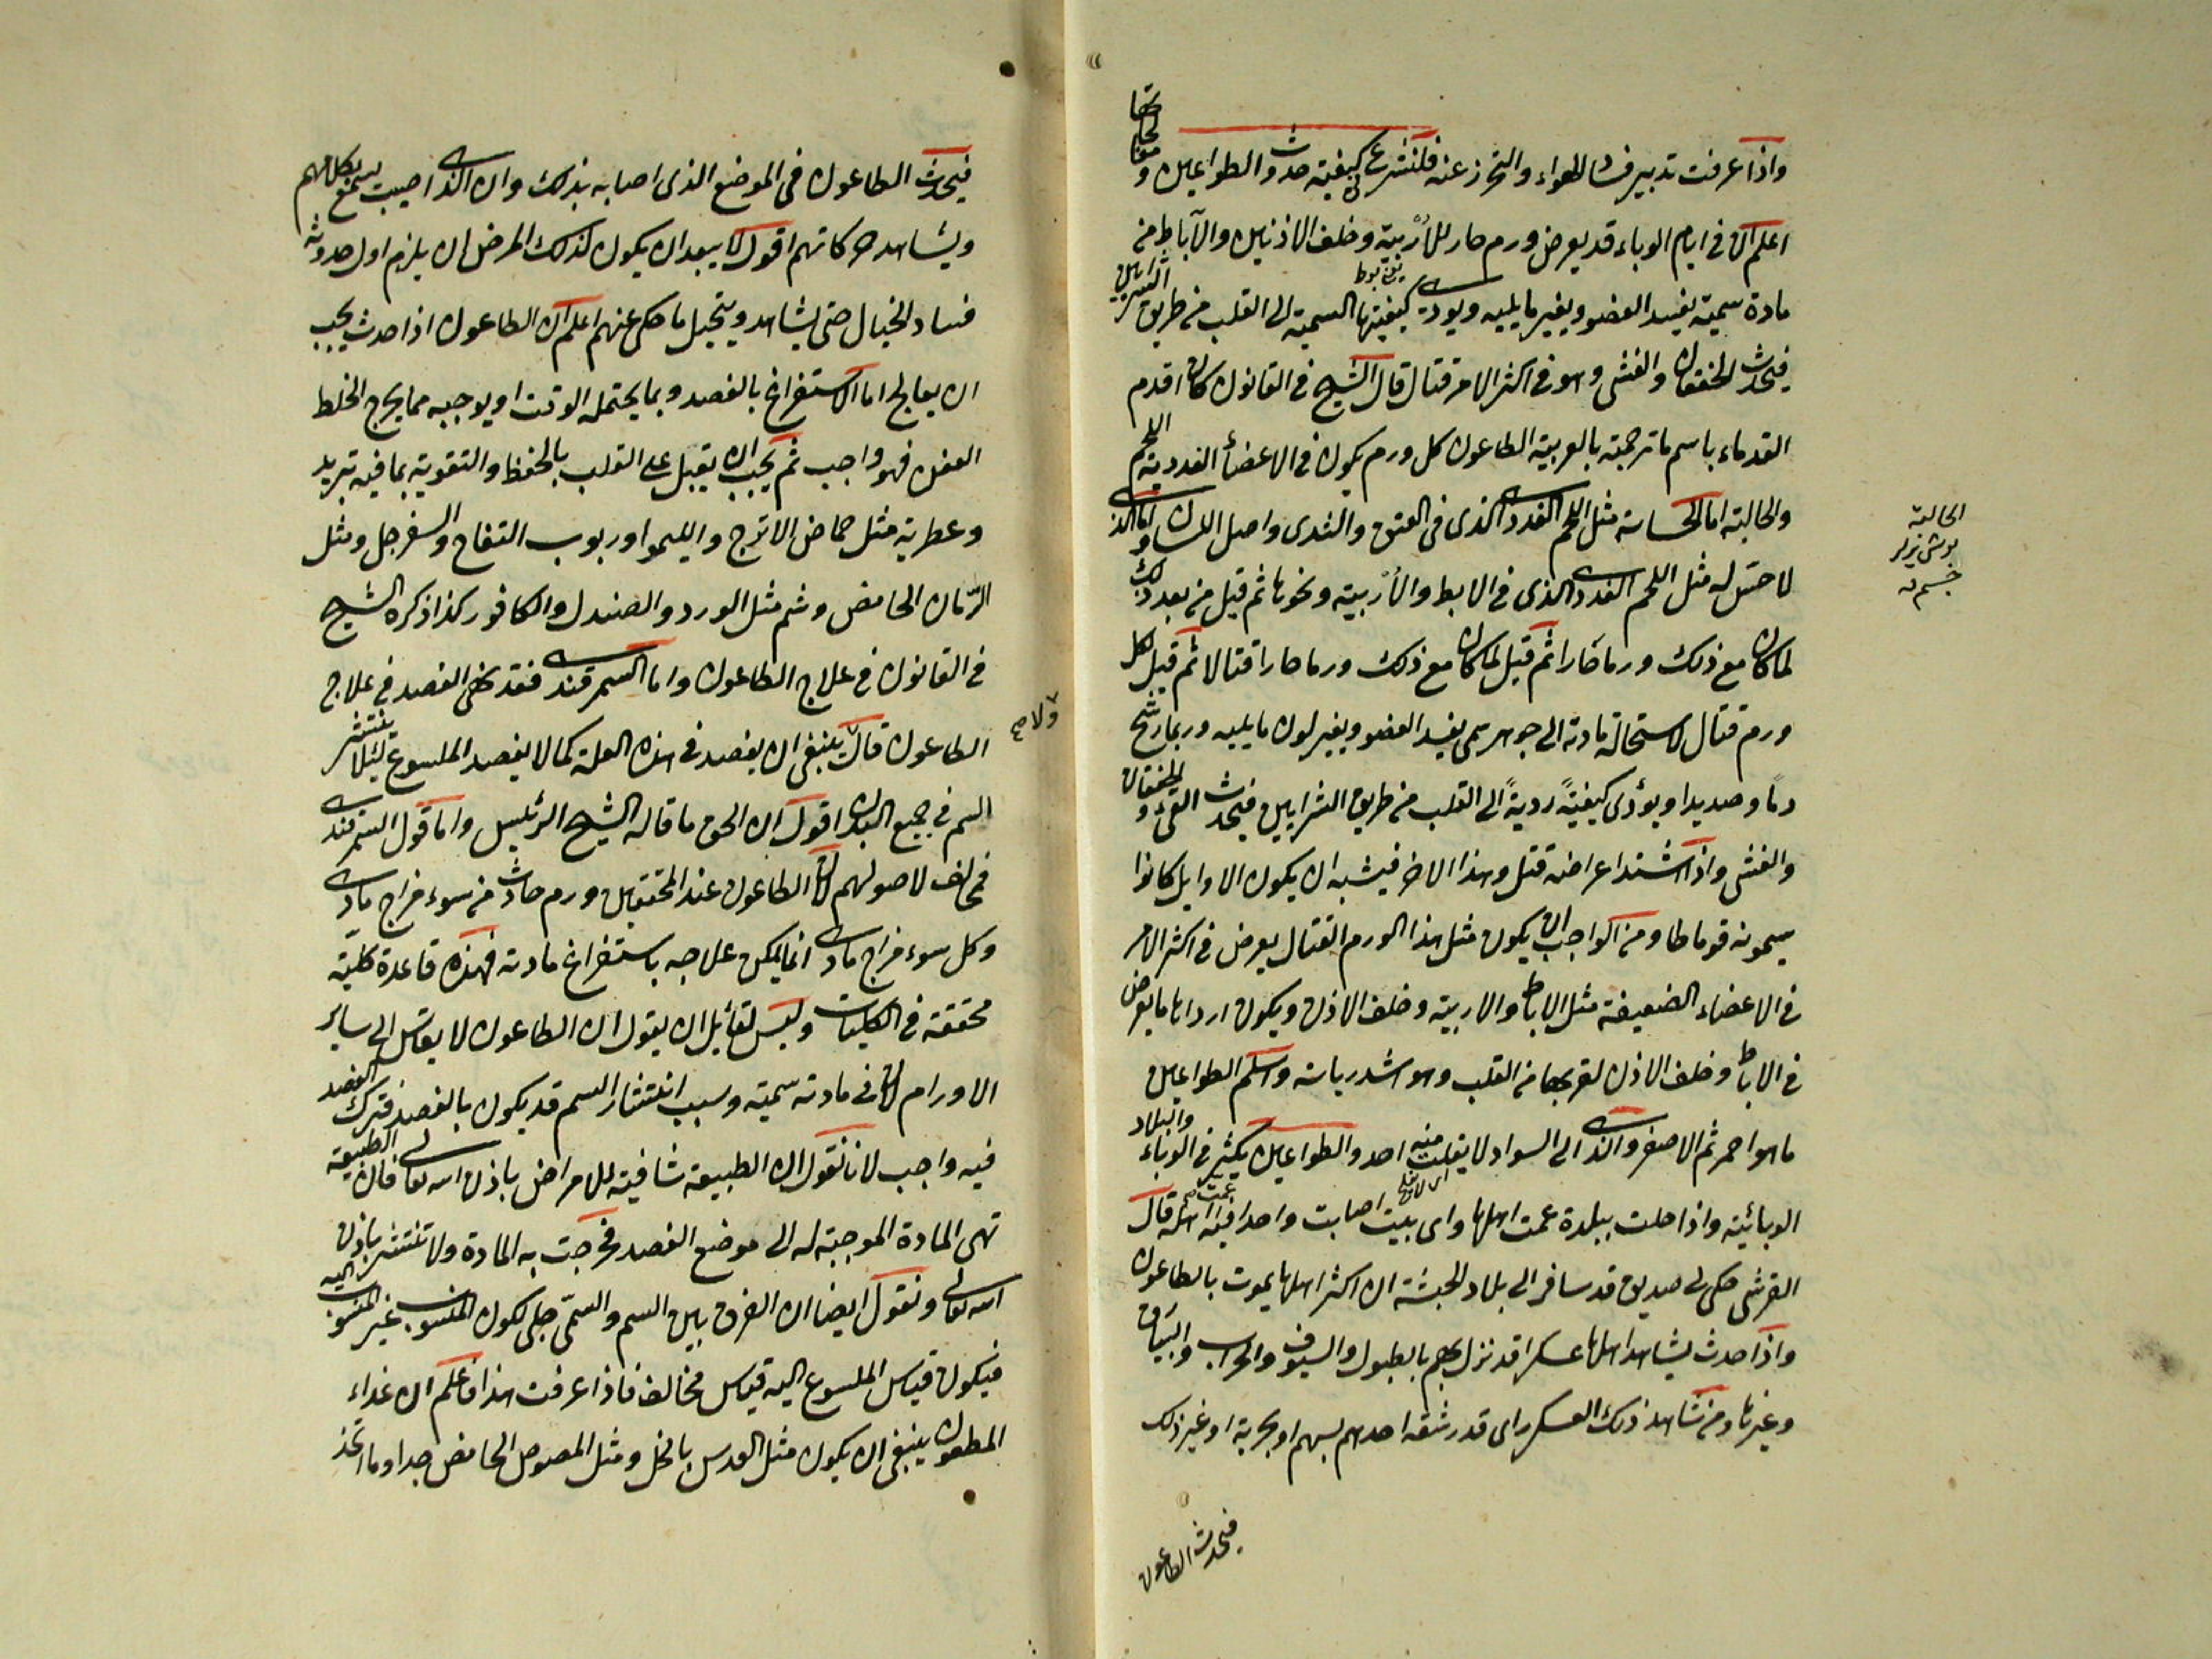 واذا عرفت تدبير فساد الهواء والتحرز عنه فلنشرع في كيفية حدوث الطواعين و معالجاتها
اعلم ان في ايام الوباء قد يعرض ورم حار للأربية وخلف الاذنين والآباط من
مادة سمية يفسد العضو ويغير ما يليه ويودي كيفيتها السمية الى القلب من طريق الشرايين
فيحدث الخفقان والغشى وهو في اكثر الامر قتال قال الشيخ في القانون كان اقدم
القدماء باسم ما ترجمته بالعربية الطاعون كل ورم يكون في الاعضأ الغددية اللحم
والخالية اما الحساسة مثل اللحم الغددى الذى في العنق والثدى واصل اللسان و اما الذي
لا حس له مثل اللحم الغددى الذى في الابط والأربية ونحوها ثم قيل من بعد ذلك
لما كان مع ذلك ورما حارا ثم قيل لما كان مع ذلك ورما حارا قتالا ثم قيل لكل
ورم قتال لاستحالة مادته الى جوهر سمى يفسد العضو ويغير لون ما يليه وربما رشح
دما وصديدا ويؤدى كيفيةً رديةً الى القلب من طريق الشرايين فيحدث القئ و الخفقان
والغشى واذا اشتد اعراضه قتل وهذا الاخر فيشبه ان يكون الاوايل كانوا
يسمونه قوماطا ومن الواجب ان يكون مثل هذا الورم القتال يعرض في اكثر الامر
في الاعضاء الضعيفة مثل الاباط والاربية وخلف الاذن ويكون اردائها ما يعرض
في الاباط وخلف الاذن لقربها من القلب وهو اشد رياسة واسلم الطواعين
ما هو احمر ثم الاصفر والذى الى السواد لا يفلت منه احد والطواعين يكثر في الوباء والبلاد
الوبائية واذا حلت ببلدة عمت اهلها واى بيت اصابت واحدا فيه عمت اهله قال
القرشى حكى لى صديق قد سافر الى بلاد الحبشة ان اكثر اهلها يموت بالطاعون
واذا حدث يشاهد اهلها عسكرا قد نزل بهم بالطبول والسيوف والحراب و
وغيرها ومن شاهد ذلك العسكر راى قد رشقه احدهم بسهم او بحربة او غير ذلك
فيحدث الطاعون
الخالية
فيحدث الطاعون في الموضع الذى اصابه بذلك وان الذى اصيب يسمع كلامهم
ويشاهد حركاتهم اقول لا يبعد ان يكون لذلك المرض ان يلزم اول حدوثه
فساد الخيال حتى يشاهد ويتخيل ما حكى عنهم اعلم ان الطاعون اذا حدث يجب
ان يعالج اما الاستفراغ بالفصد وبما يحتمله الوقت او يوجبه مما يخرج الخلط
العفن فهو واجب ثم يجب ان يقبل على القلب بالحفظ والتقوية بما فيه تبريد
وعطرية مثل حماض الاترج والليمو او ربوب التفاح والسفرجل ومثل
الرمان الحامض وشم مثل الورد والصندل والكافور كذا ذكره الشيخ
في القانون في علاج الطاعون واما السمرقندى فقد نهى الفصد في علاج
الطاعون قال ولا ينبغى ان يفصد في هذه العلة كما لا يفصد الملسوع لئلا ينتشر
السم في جميع البدن اقول ان الحق ما قاله الشيخ الرئيس واما قول السمرقندى
فمخالف لاصولهم لان الطاعون عند المحققين ورم حادث من سوء مزاج مادى
وكل سوء مزاج مادى انما يمكن علاجه باستفراغ مادته فهذه قاعدة كلية
محققة في الكليات وليس لقائل ان يقول ان الطاعون لا يقاس الى ساير
الاورام لان في مادته سمية وسبب انتشار السم قد يكون بالفصد فترك الفصد
فيه واجب لانا نقول ان الطبيعة شافية للامراض باذن الله تعالى فان الطبيعة
تهى المادة الموجبة له الى موضع الفصد فخرجت به المادة ولا تنتشر باذن
الله تعالى ونقول ايضا ان الفرق بين السم والسمى جلى لكون المنسوب غير المنسوب اليه
فيكون قياس الملسوع اليه قياس مخالف فاذا عرفت هذا فاعلم ان غذاء
المطعون ينبغى ان يكون مثل العدس بالخل ومثل المصوص الحامض جدا وما اتخذ